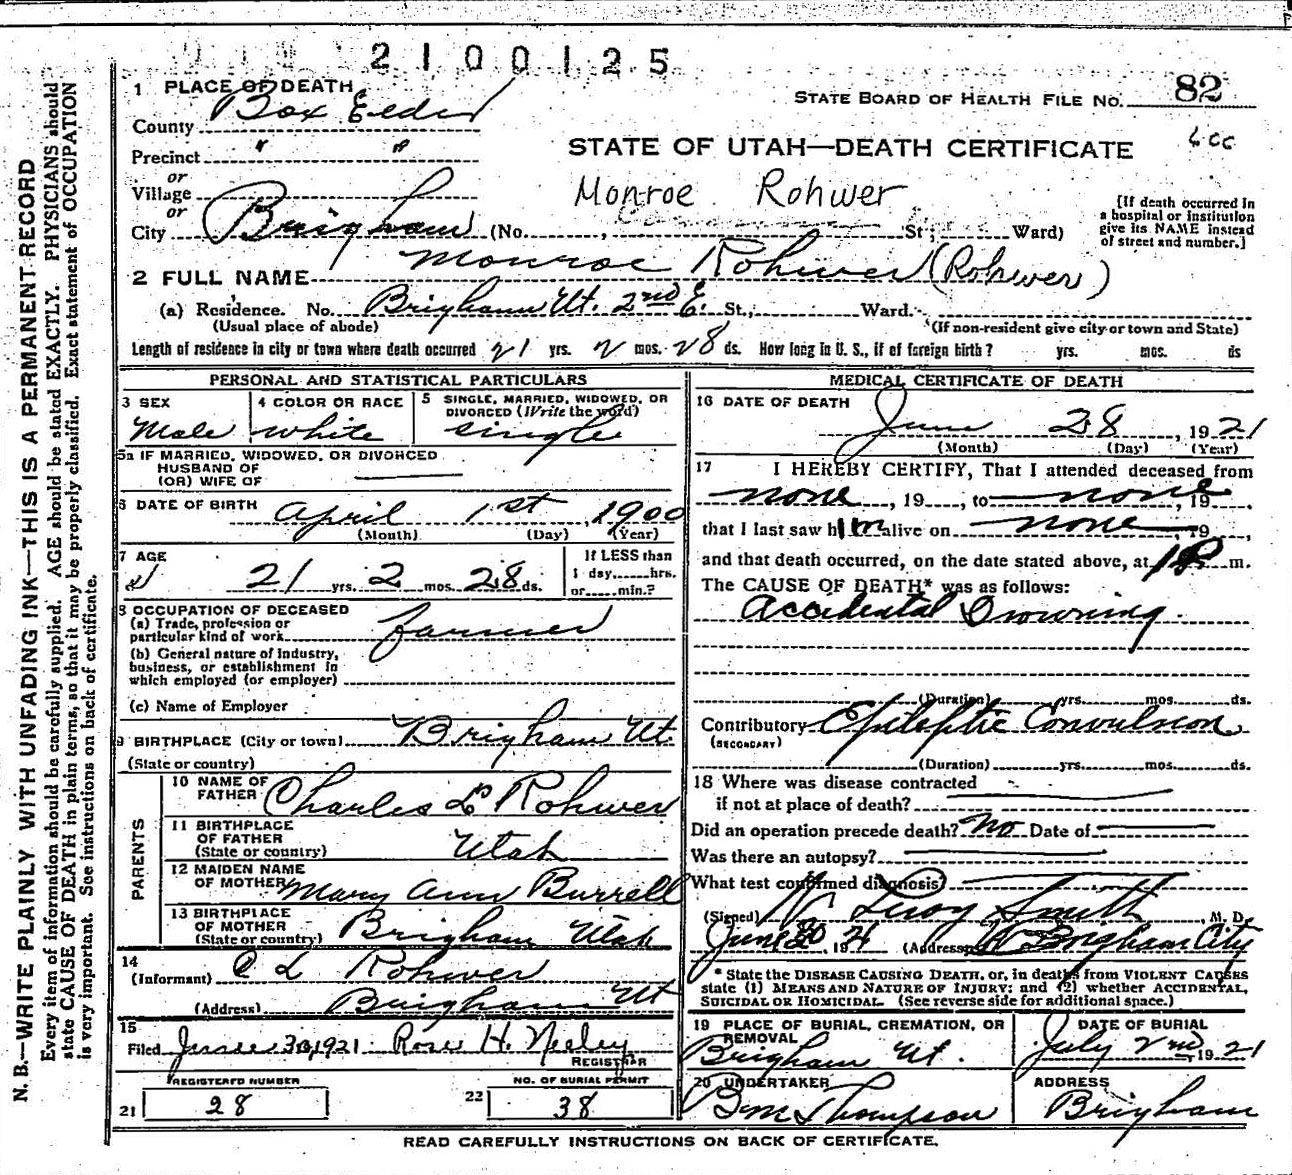 2100125
1 PLACE OF DEATH
County Box Elder
STATE BOARD OF HEALTH FILE NO. 82
Precinct " "
STATE OF UTAH—DEATH CERTIFICATE
or
Village
Monroe Rohwer
or
City Brigham (No. , St; Ward)
[If death occurred in
a hospital or institution
give its NAME instead
of street and number.]
2 FULL NAME Monroe Rohwer (Rohwer)
(a) Residence. No. Brigham Ut. 2nd E. St., Ward.
(Usual place of abode) (If non-resident give city or town and State)
Length of residence in city or town where death occurred 21 yrs. 2 mos. 28 ds. How long in U. S., if of foreign birth? yrs. mos. ds
PERSONAL AND STATISTICAL PARTICULARS
3 SEX Male
4 COLOR OR RACE white
5 SINGLE, MARRIED, WIDOWED, OR
DIVORCED (Write the word)
single
5a IF MARRIED, WIDOWED, OR DIVORCED
HUSBAND OF
(OR) WIFE OF
6 DATE OF BIRTH April 1st, 1900
(Month) (Day) (Year)
7 AGE
21 yrs. 2 mos. 28 ds.
If LESS than
1 day......hrs.
or......min.?
8 OCCUPATION OF DECEASED
(a) Trade, profession or
particular kind of work farmer
(b) General nature of industry,
business, or establishment in
which employed (or employer)
(c) Name of Employer
9 BIRTHPLACE (City or town) Brigham Ut.
(State or country)
PARENTS
10 NAME OF
FATHER Charles L. Rohwer
11 BIRTHPLACE
OF FATHER
(State or country) Utah
12 MAIDEN NAME
OF MOTHER Mary Ann Burrell
13 BIRTHPLACE
OF MOTHER
(State or country) Brigham Utah
14
(Informant) C L Rohwer
(Address) Brigham Ut
15
Filed June 30, 1921 Rose H. Neeley
REGISTRAR
REGISTERED NUMBER
21 28
NO. OF BURIAL PERMIT
22 38
MEDICAL CERTIFICATE OF DEATH
16 DATE OF DEATH
June 28, 1921
(Month) (Day) (Year)
17 I HEREBY CERTIFY, That I attended deceased from
none, 19 , to none, 19 ,
that I last saw him alive on none, 19 ,
and that death occurred, on the date stated above, at 1 P m.
The CAUSE OF DEATH* was as follows:
Accidental Drowning
(Duration) yrs. mos. ds.
Contributory Epileptic Convulsion
(SECONDARY)
(Duration) yrs. mos. ds.
18 Where was disease contracted
if not at place of death?
Did an operation precede death? No Date of
Was there an autopsy?
What test confirmed diagnosis?
(Signed) Leroy Smith, M. D.
June 30 1921 (Address) Brigham City
* State the DISEASE CAUSING DEATH, or, in deaths from VIOLENT CAUSES
state (1) MEANS AND NATURE OF INJURY; and (2) whether ACCIDENTAL,
SUICIDAL OR HOMICIDAL. (See reverse side for additional space.)
19 PLACE OF BURIAL, CREMATION, OR
REMOVAL
Brigham Ut.
DATE OF BURIAL
July 2nd 1921
20 UNDERTAKER
B M Thompson
ADDRESS
Brigham
READ CAREFULLY INSTRUCTIONS ON BACK OF CERTIFICATE.
N. B.—WRITE PLAINLY WITH UNFADING INK—THIS IS A PERMANENT RECORD
Every item of information should be carefully supplied. AGE should be stated EXACTLY. PHYSICIANS should
state CAUSE OF DEATH in plain terms, so that it may be properly classified. Exact statement of OCCUPATION
is very important. See instructions on back of certificate.